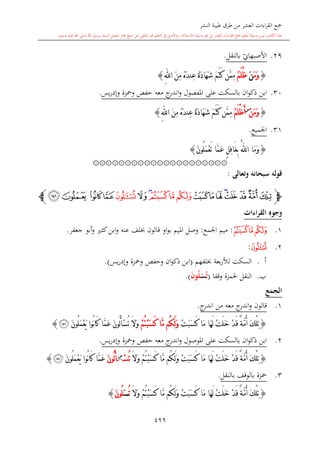 جمع القراءات العشر من طرق طيبة النشر
٢٩. الأصبهانيّ بالنقل.
﴿ وَمَنْ أَظْلَمُ مِمَّن كَتَمَ شَهَادَةً عِندَهُ مِنَ اللَّهِ ﴾
٣٠. ابن ذكوان بالسكت على المفصول واندرج معه حفص وحمزة وإدريس.
﴿ وَمَنْ أَظْلَمُ مِمَّن كَتَمَ شَهَادَةً عِندَهُ مِنَ اللَّهِ ﴾
٣١. الجميع.
﴿ وَمَا اللَّهُ بِغَافِلٍ عَمَّا تَعْمَلُونَ ﴾
قوله سبحانه وتعالى :
﴿ تِلْكَ أُمَّةٌ قَدْ خَلَتْ لَهَا مَا كَسَبَتْ وَلَكُم مَّا كَسَبْتُمْ وَلَا تُسْأَلُونَ عَمَّا كَانُوا يَعْمَلُونَ ﴾
وجوه القراءات
١. وَلَكُم مَّا كَسَبْتُمْ: ميم الجمع: وصل الميم بواو قالون بخلف عنه وابن كثير وأبو جعفر.
٢. تُسْأَلُونَ:
أ . السكت للأربعة بخلفهم (ابن ذكوان وحفص وحمزة وإدريس).
ب. النقل لحمزة وقفا (تُسَلُونَ).
الجمع
١. قالون واندرج معه من اندرج.
﴿ تِلْكَ أُمَّةٌ قَدْ خَلَتْ لَهَا مَا كَسَبَتْ وَلَكُم مَّا كَسَبْتُمْ وَلَا تُسْأَلُونَ عَمَّا كَانُوا يَعْمَلُونَ ﴾
٢. ابن ذكوان بالسكت على الموصول واندرج معه حفص وحمزة وإدريس.
﴿ تِلْكَ أُمَّةٌ قَدْ خَلَتْ لَهَا مَا كَسَبَتْ وَلَكُم مَّا كَسَبْتُمْ وَلَا تُسْأَلُونَ عَمَّا كَانُوا يَعْمَلُونَ ﴾
٣. حمزة بالوقف بالنقل.
﴿ تِلْكَ أُمَّةٌ قَدْ خَلَتْ لَهَا مَا كَسَبَتْ وَلَكُم مَّا كَسَبْتُمْ وَلَا تُسَلُونَ ﴾
٤٩٩